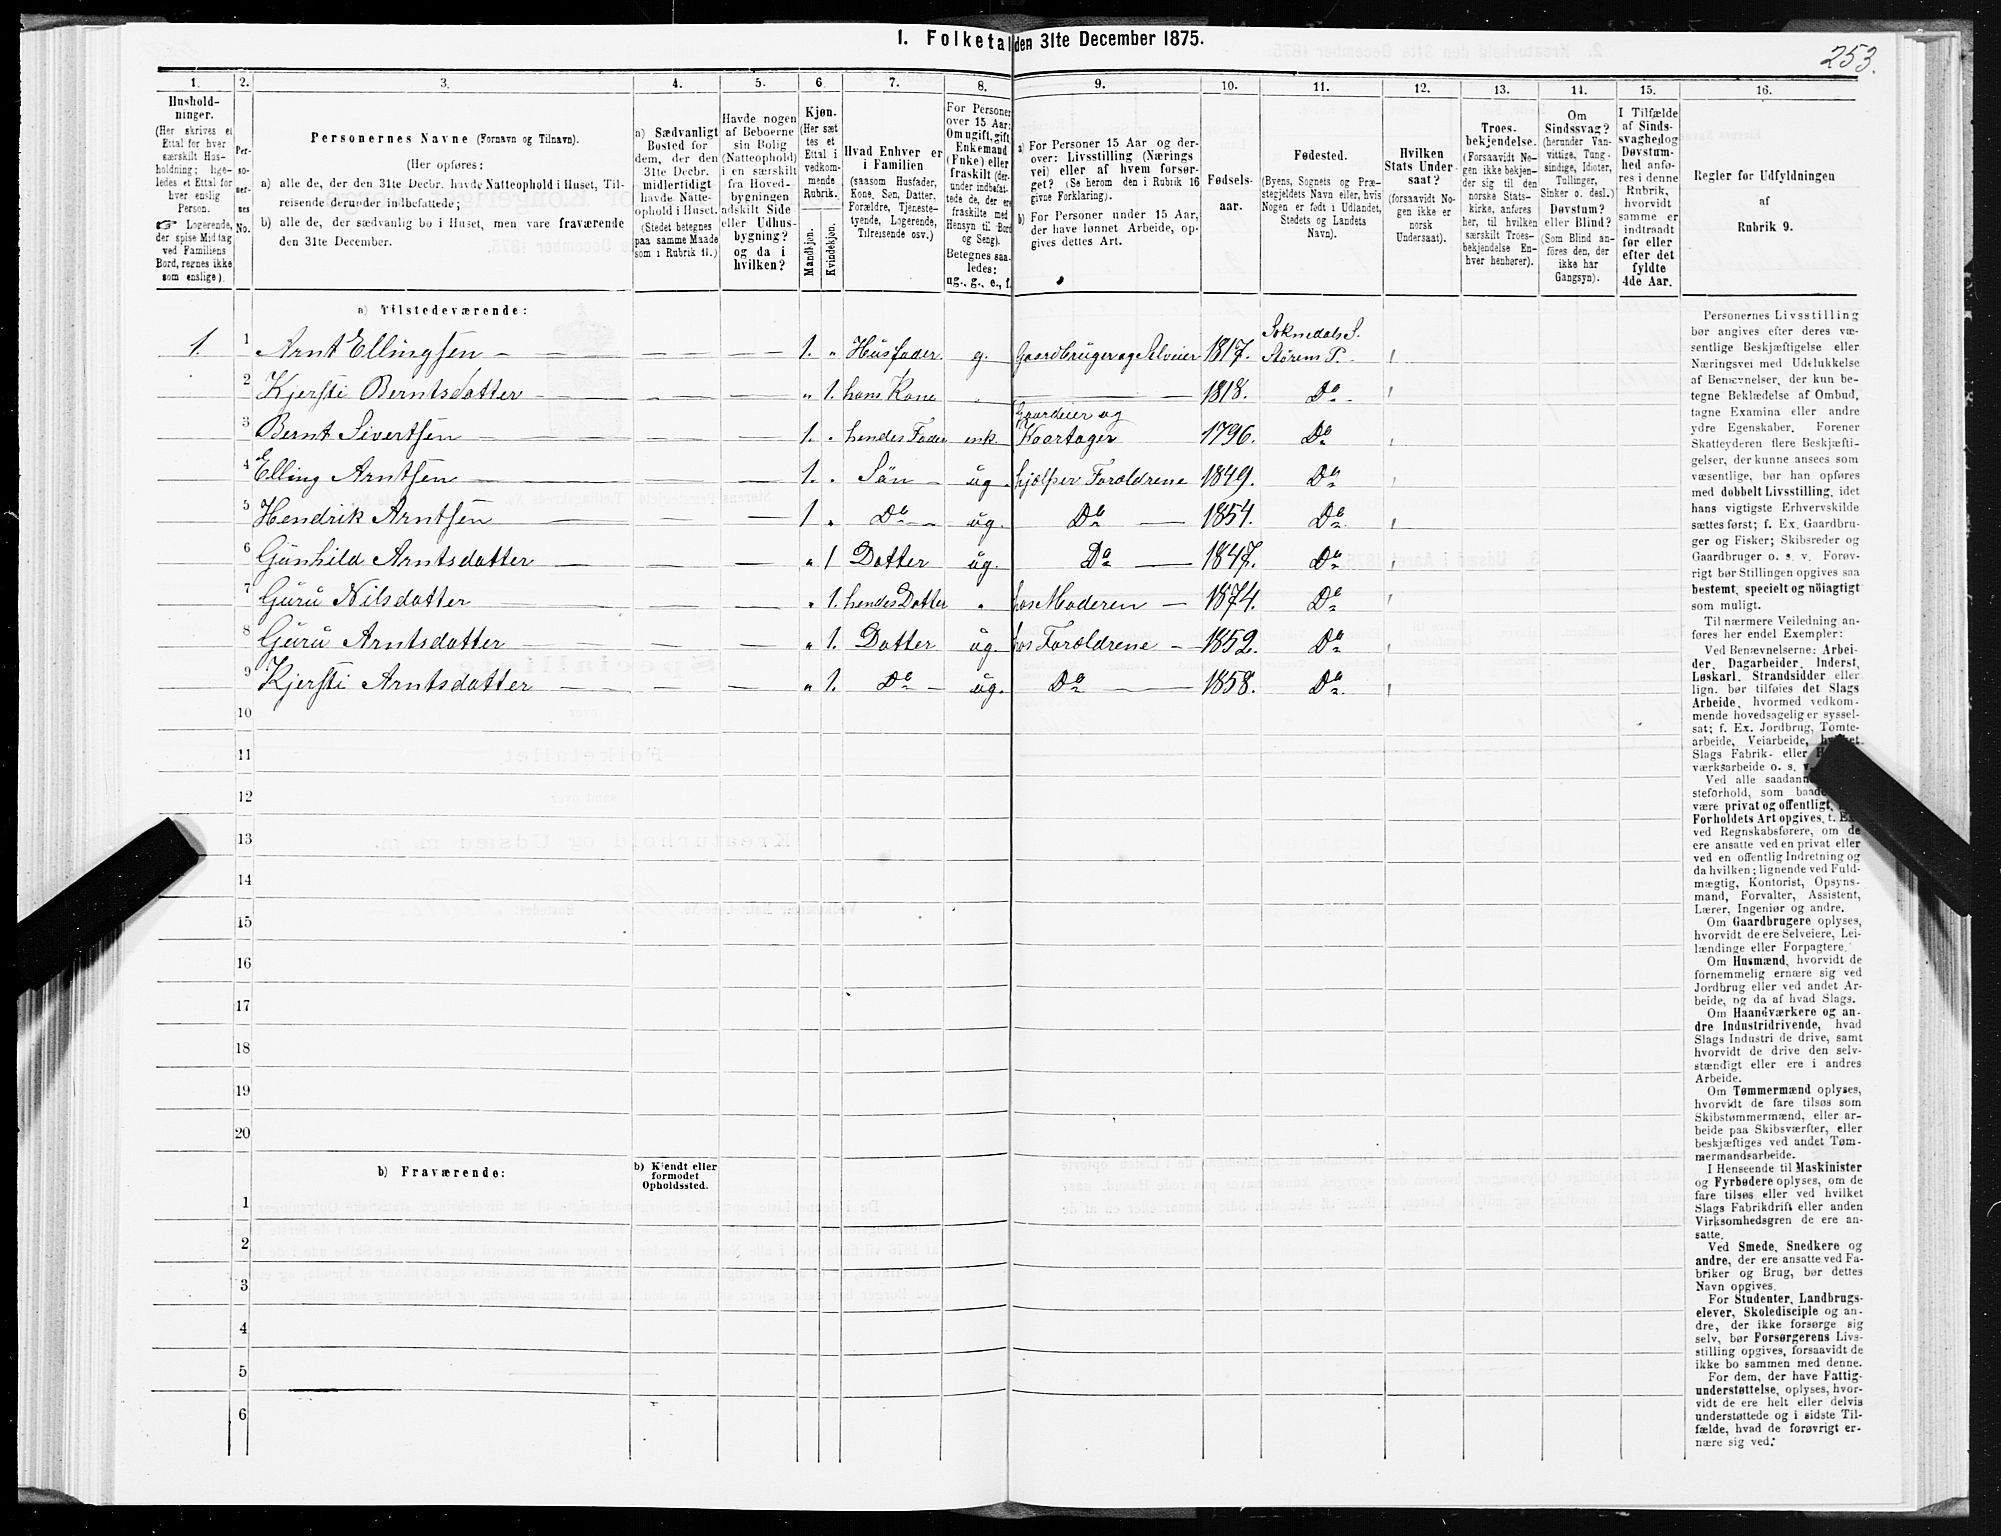 1. Folketal den 31te December 1875.
253.
1. 2. 3. 4. 5. 6. 7. 8. 9. 10. 11. 12. 13. 14. 15. 16.
Hushold-
ninger.
(Her skrives et
Ettal for hver
særskilt Hus-
holdning; lige-
ledes et Ettal for
hver enslig
Person.
☞ Logerende,
der spise Middag
ved Familiens
Bord, regnes ikke
som enslige).
Per-
so-
ner-
nes
No.
Personernes Navne (Fornavn og Tilnavn).
(Her opføres:
a) alle de, der den 31te Decbr. havde Natteophold i Huset, Til-
reisende derunder indbefattede;
b) alle de, der sædvanlig bo i Huset, men vare fraværende
den 31te December.
a) Sædvanligt
Bosted for
dem, der den
31te Decbr.
midlertidigt
havde Natte-
ophold i Huset.
(Stedet betegnes
paa samme Maade
som i Rubrik 11.)
Havde nogen
af Beboerne
sin Bolig
(Natteophold)
i en særskilt
fra Hoved-
bygningen
adskilt Side
eller Udhus-
bygning?
og da i
hvilken?
Kjøn.
(Her sæt-
tes et
Ettal i
vedkom-
mende
Rubrik.
Mandkjøn.
Kvindekjøn.
Hvad Enhver er
i Familien
(saasom Husfader,
Kone, Søn, Datter,
Forældre, Tjeneste-
tyende, Logerende,
Tilreisende osv.)
For Personer
over 15 Aar:
Om ugift, gift,
Enkemand
(Enke) eller
fraskilt (der-
under indbefat-
tede de, der ere
fraskilte med
Hensyn til Bord
og Seng).
Betegnes saa-
ledes:
ug., g., e., f.
a) For Personer 15 Aar og der-
over: Livsstilling (Nærings
vei) eller af hvem forsør-
get? (Se herom den i Rubrik 16
givne Forklaring).
b) For Personer under 15 Aar,
der have lønnet Arbeide, op-
gives dettes Art.
Fødsels-
aar.
Fødested.
(Byens, Sognets og Præ-
stegjeldets Navn eller, hvis
Nogen er født i Udlandet,
Stedets og Landets
Navn).
Hvilken
Stats Under-
saat?
(forsaavidt No-
gen ikke er
norsk
Undersaat).
Troes-
bekjendelse.
(Forsaavidt No-
gen ikke bekjen-
der sig til den
norske Stats-
kirke, anføres
her, til hvilken
særskilt Troes-
bekjendelse En-
hver henhører).
Om
Sindssvag?
(herunder Van-
vittige, Tung-
sindige, Idioter,
Tullinger,
Sinker o. desl.)
Døvstum?
eller Blind?
(Som Blind an-
føres den, der
ikke har
Gangsyn).
I Tilfælde
af Sinds-
svaghed og
Døvstum-
hed anfø-
res i denne
Rubrik,
hvorvidt
samme er
indtraadt
før eller
efter det
fyldte
4de Aar.
Regler for Udfyldningen
af
Rubrik 9.
a) Tilstedeværende:
Soknedals S.
1. 1 Arnt Ellingsen — — — 1. " Husfader g. Gaardbruger og Selveier 1817. Størens P.
2 Kjersti Berntsdatter — — — " 1. hans Kone " — 1818. Do
Gaardeier og
3 Bernt Sivertsen — — — 1. " hendes Fader enk. Kaartager 1796. Do
4 Elling Arntsen — — — 1. " Sön — ug. hjælper Forældrene 1849. Do
5 Hendrik Arntsen — — — 1 " Do — ug. Do — 1854. Do
6 Gunhild Arntsdatter — — " 1 Datter ug. Do — 1847. Do
7 Guru Nilsdatter — — — " 1. hendes Datter " hos Moderen — 1874. Do
8 Guru Arntsdatter — — — " 1. Datter ug. hos Forældrene — 1852. Do
9 Kjersti Arntsdatter — — — " 1. Do — ug. Do — 1858. Do
10
11
12
13
14
15
16
17
18
19
20
b) Fraværende:
b) Kjendt eller
formodet
Opholdssted.
1
2
3
4
5
6
Personernes Livsstilling
bør angives efter deres væ-
sentlige Beskjæftigelse eller
Næringsvei med Udelukkelse
af Benævnelser, der kun be-
tegne Beklædelse af Ombud,
tagne Examina eller andre
ydre Egenskaber. Forener
Skatteyderen flere Beskjæfti-
gelser, der kunne ansees som
væsentlige, bør han opføres
med dobbelt Livsstilling, idet
hans vigtigste Erhvervskilde
sættes først; f. Ex. Gaardbru-
ger og Fisker; Skibsreder og
Gaardbruger o. s. v. Forøv-
rigt bør Stillingen opgives saa
bestemt, specielt og nöiagtigt
som muligt.
Til nærmere Veiledning an-
føres her endel Exempler:
Ved Benævnelserne: Arbei-
der, Dagarbeider, Inderst,
Løskarl, Strandsidder eller
lign. bør tilføies det Slags
Arbeide, hvormed vedkom-
mende hovedsagelig er syssel-
sat; f. Ex. Jordbrug, Tomte-
arbeide, Veiarbeide,
Slags Fabrik- eller
værksarbeide o. s. v.
Ved alle saadanne
steforhold, som baade
være privat og offentligt,
Forholdets Art opgives, t. Ex.
ved Regnskabsførere, om de
ere ansatte ved en privat eller
ved en offentlig Indretning og
da hvilken; lignende ved Fuld-
mægtig, Kontorist, Opsyns-
mand, Forvalter, Assistent,
Lærer, Ingeniør og andre.
Om Gaardbrugere oplyses,
hvorvidt de ere Selveiere, Lei-
lændinge eller Forpagtere.
Om Husmænd, hvorvidt de
fornemmelig ernære sig ved
Jordbrug eller ved andet Ar-
beide, og da af hvad Slags.
Om Haandværkere og an-
dre Industridrivende, hvad
Slags Industri de drive, samt
hvorvidt de drive den selv-
stændigt eller ere i andres
Arbeide.
Om Tømmermænd oplyses,
hvorvidt de fare tilsøs som
Skibstømmermænd, eller ar-
beide paa Skibsværfter, eller
beskjæftiges ved andet Tøm-
mermandsarbeide.
I Henseende til Maskinister
og Fyrbødere oplyses, om de
fare tilsøs eller ved hvilket
Slags Fabrikdrift eller anden
Virksomhedsgren de ere an-
satte.
Ved Smede, Snedkere og
andre, der ere ansatte ved Fa-
briker og Brug, bør dettes
Navn opgives.
For Studenter, Landbrugs-
elever, Skoledisciple og an-
dre, der ikke forsørge sig
selv, bør Forsørgerens Livs-
stilling opgives, forsaavidt de
ikke bo sammen med denne.
For dem, der have Fattig-
understøttelse, oplyses, hvor-
vidt de ere helt eller delvis
understøttede og i sidste Til-
fælde, hvad de forøvrigt er-
nære sig ved.